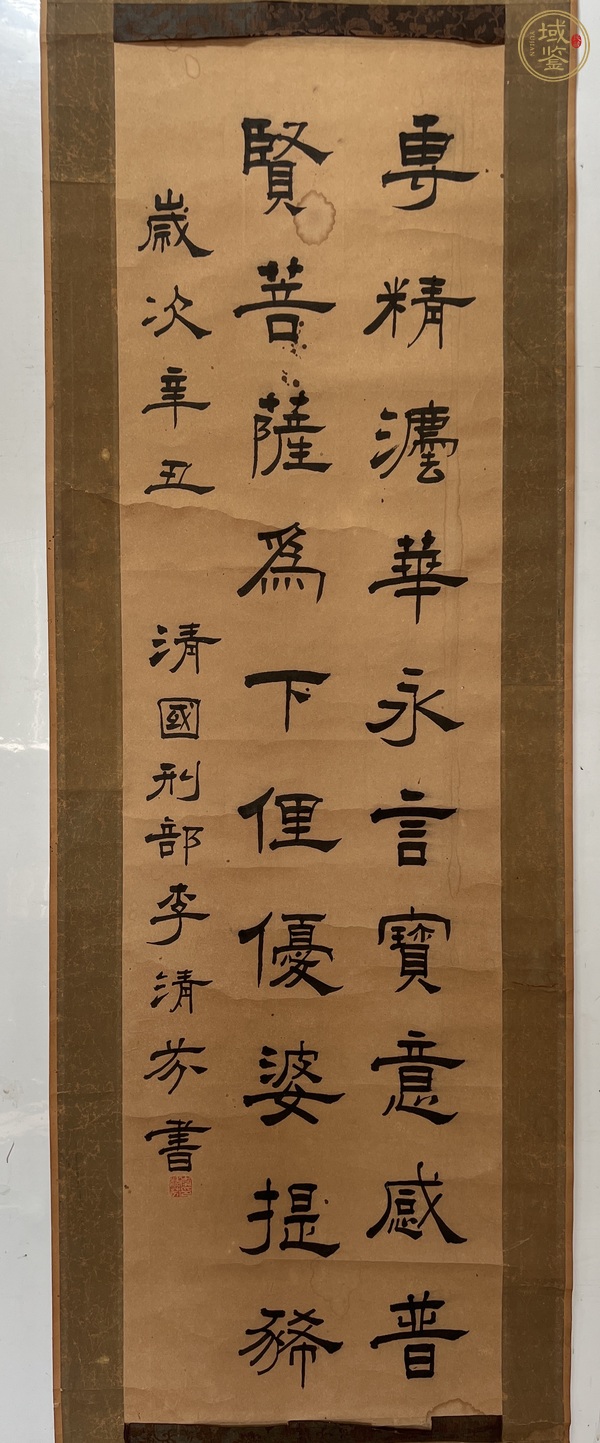 專精灋華永言寶意感普
賢菩薩為下俚優婆提稀
歲次辛丑 清國刑部李清芬書
域鉴